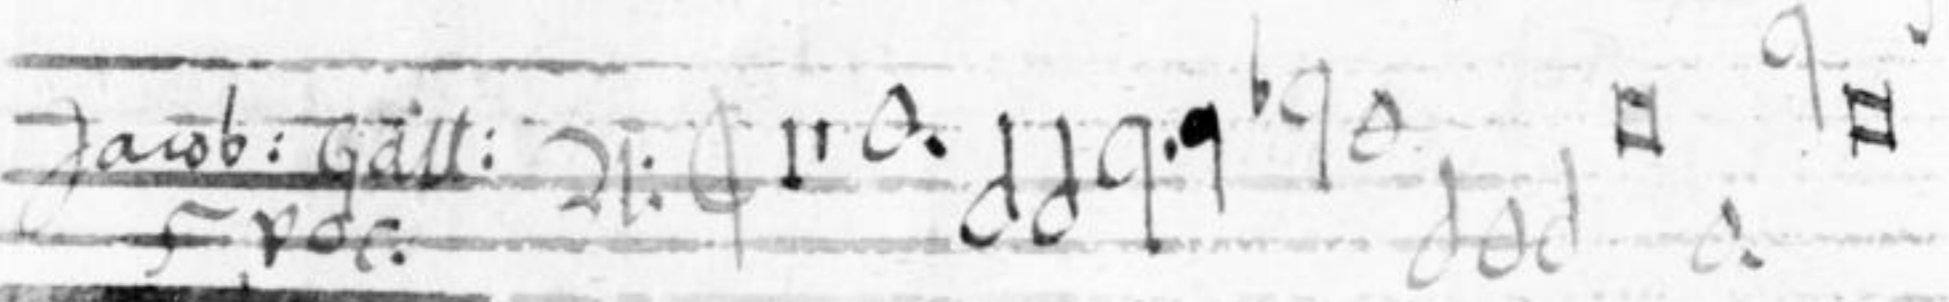 Jacob: Gall:
5 voc.